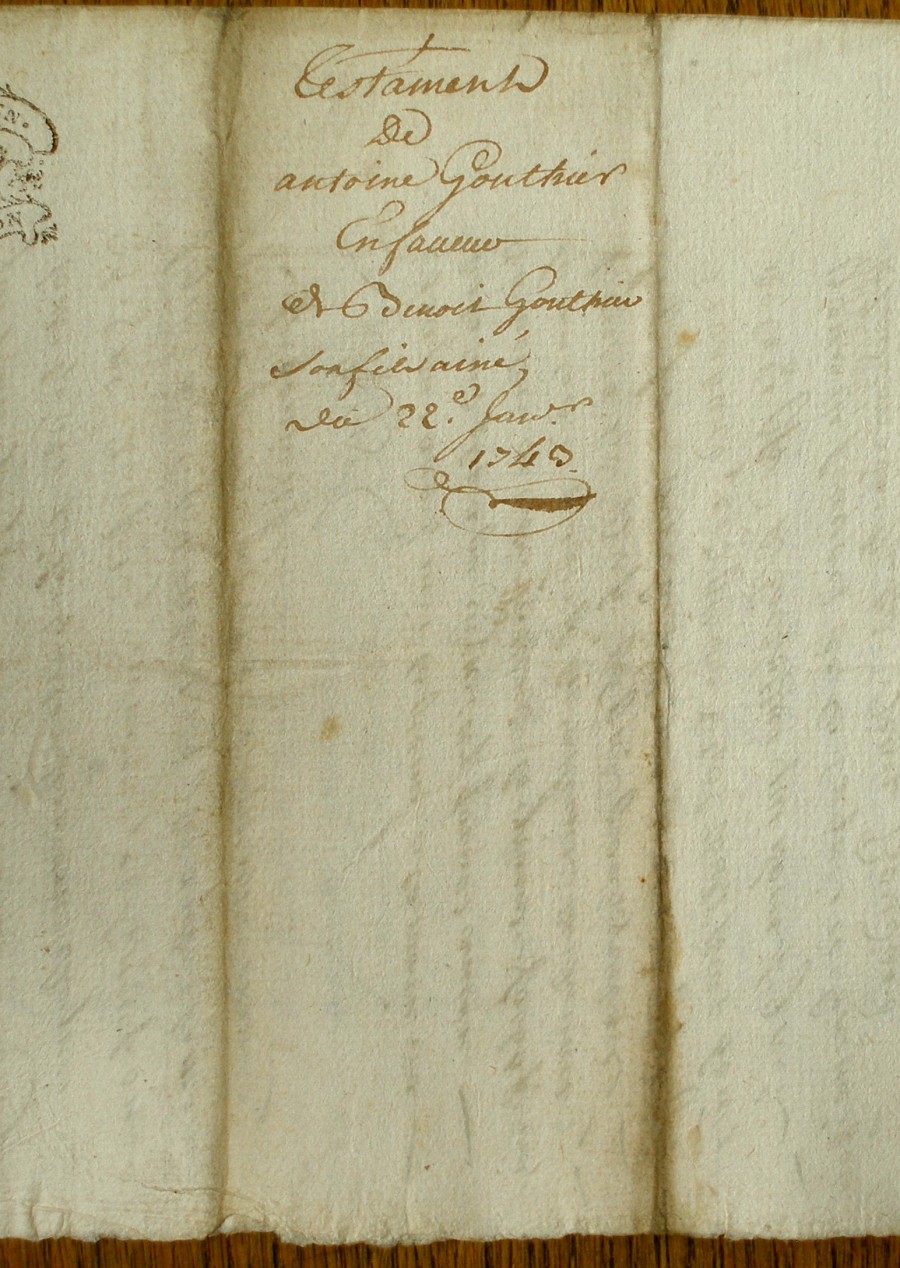 Testament
De
antoine Gouthier
En faueur
de Benoit Gouthier
Son fils ainé
du 22.e Janv.r
1743